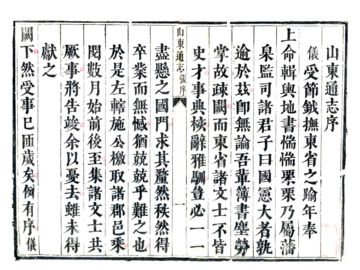 山東通志序
儀受節鉞撫東省之踰年奉
上命輯輿地書惴惴栗栗乃屬藩
臬監司諸君子曰國憲大者孰
逾於茲卽無論吾輩簿書塵勞
掌故疎闊而東省諸文士不皆
史才事典核辭雅馴豈必一一
山東通志舊序
盡懸之國門求其釐然秩然得
卒業而無憾猶兢兢乎難之也
於是左轄施公檄取諸郡邑乘
閱數月始前後至集諸文士共
厥事將告竣余以憂去雖未得
獻之
闕下然受事已匝歲矣例有序儀